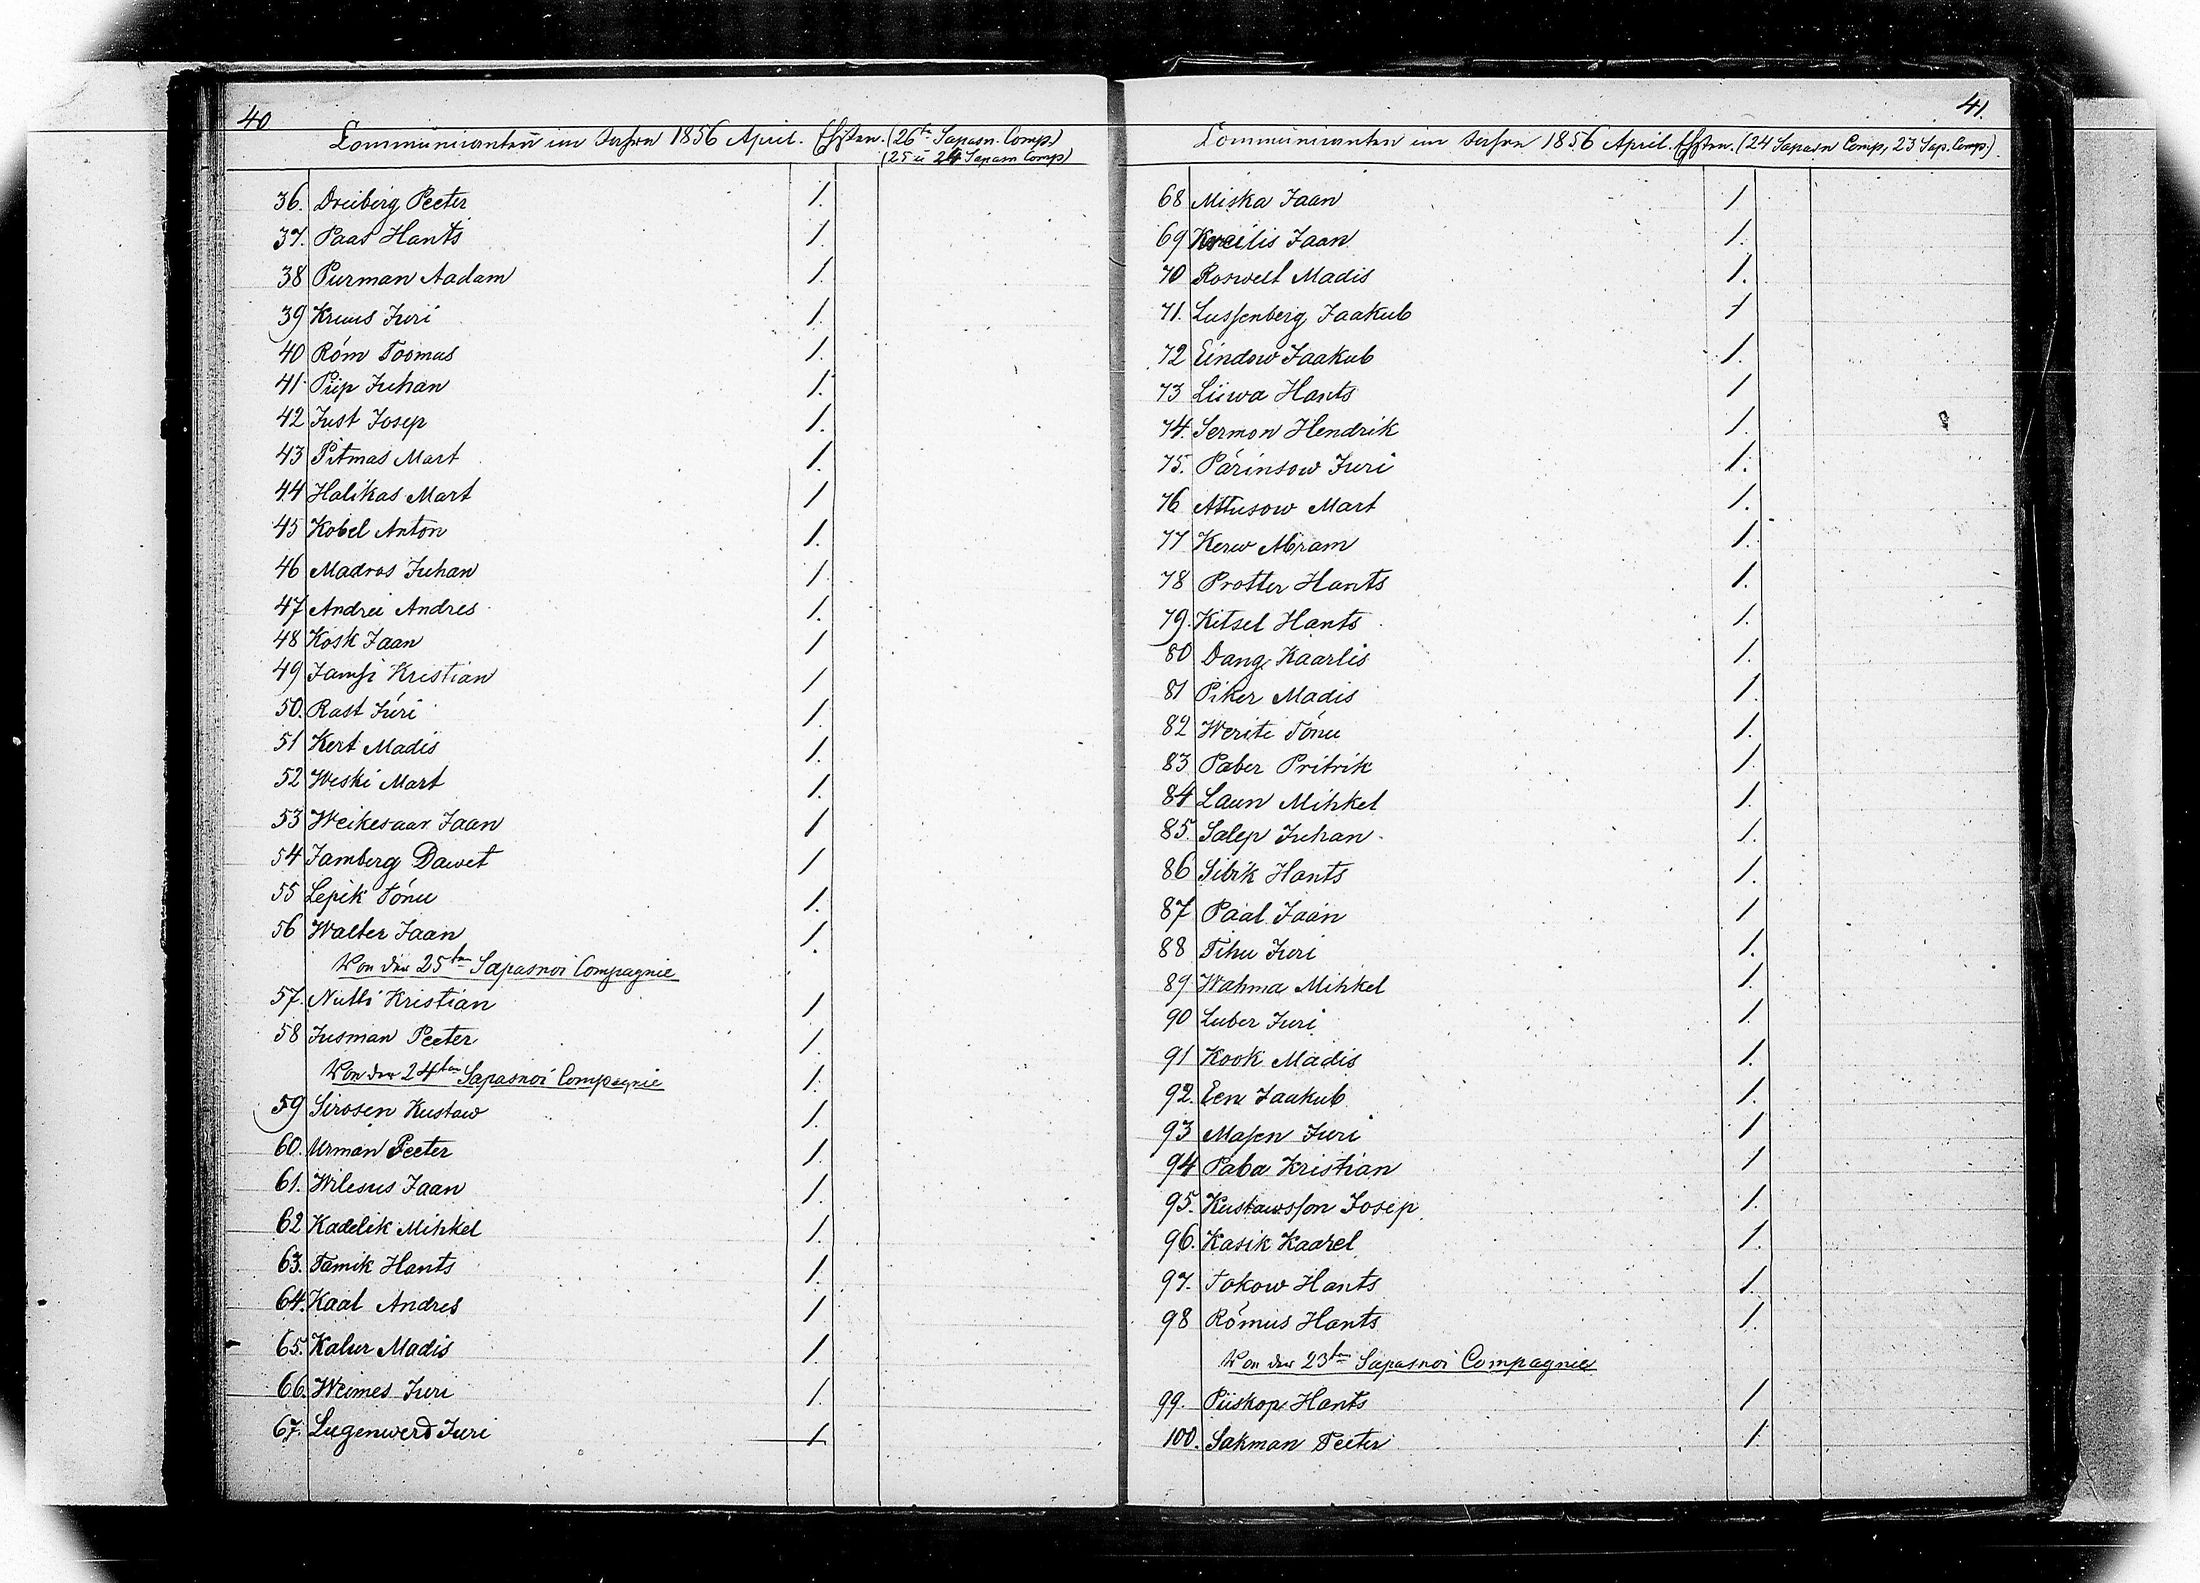 40
Communicanten im Jahre 1856 April. Ehsten. (26ten Sapasn. Comp.)
(25 u 24 Sapasn Comp)
36. Dreiberg Peeter 1.
37. Paas Hants 1.
38 Purman Aadam 1.
39 Kruus Juri 1.
40 Róm Toomas 1.
41. Piip Juhan 1.
42 Just Josep 1.
43 Pitmas Mart 1.
44 Halikas Mart 1
45 Kobel Anton 1.
46 Madros Juhan 1.
47 Andrei Andres 1.
48 Kosk Jaan 1
49 Jamsi Kristian 1
50. Rast Júri 1.
51 Kert Madis 1.
52 Weski Mart 1.
53 Weikesaar Jaan 1
54 Jamberg Dawet 1
55 Lepik Tónu 1.
56 Walter Jaan 1.
Von der 25ten Sapasnoi Compagnie
57. Nutli Kristian 1
58 Jusman Peeter 1.
Von der 24ten Sapasnoi Compagnie 1.
59 Sirosen Kustaw 1.
60. Urman Peeter 1.
61. Wilesus Jaan 1.
62 Kadelik Mihkel 1.
63. Tamik Hants 1.
64. Kaal Andres 1
65. Kalur Madis 1.
66. Weimes Juri 1.
67. Lugenwerd Juri 1
41.
Communicanten im Jahre 1856 April. Ehsten. (24 Sapasn Comp, 23 Sap. Comp.)
68 Miska Jaan 1
69 Jaan 1.
70 Roswelt Madis 1.
71. Lussenberg Jaakub 1
72 Eindow Jaakub 1.
73 Liiwa Hants 1
74. Sermon Hendrik 1.
75. Párinsow Juri 1.
76 Attusow Mart 1.
77 Kerw Abram 1.
78 Protter Hants 1.
79. Kitsel Hants 1.
80 Dang Kaarlis 1.
81 Piker Madis 1.
82 Werite Tónu 1.
83 Paber Pritrik 1.
84 Laun Mihkel 1.
85. Salep Juhan 1.
86 Sibik Hants 1.
87 Paal Jaan 1
88 Tihu Juri 1.
89 Wahma Mihkel 1.
90 Luber Juri 1.
91 Kook Madis 1.
92. Een Jaakub 1.
93 Masen Juri 1
94 Paba Kristian 1
95. Kustawsson Josep 1.
96. Kasik Kaarel 1.
97. Tokow Hants 1.
98 Rómus Hants 1.
Von der 23ten Sapasnoi Compagnie
99. Piiskop Hants 1
100. Sakman Peeter 1.